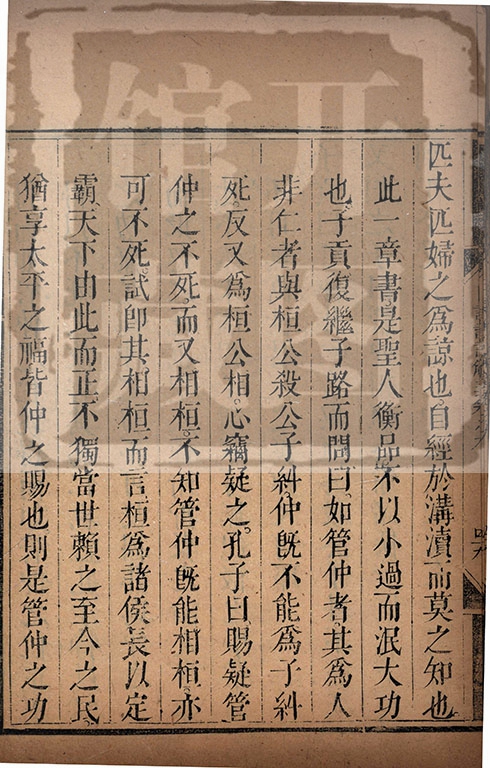 匹夫匹婦之爲諒也。自經於溝瀆而莫之知也
此一章書是聖人衡品不以小過而泯大功
也。子貢復繼子路而問曰。如管仲者其爲人
非仁者與桓公殺公子糾。仲旣不能爲子糾
死。反又爲桓公相。心竊疑之。孔子曰。賜疑管
仲之不死。而又相桓。不知管仲旣能相桓。亦
可不死。試卽其相桓而言桓爲諸侯長以定
霸。天下由此而正。不獨當世賴之。至今之民。
猶享太平之福。皆仲之賜也。則是管仲之功